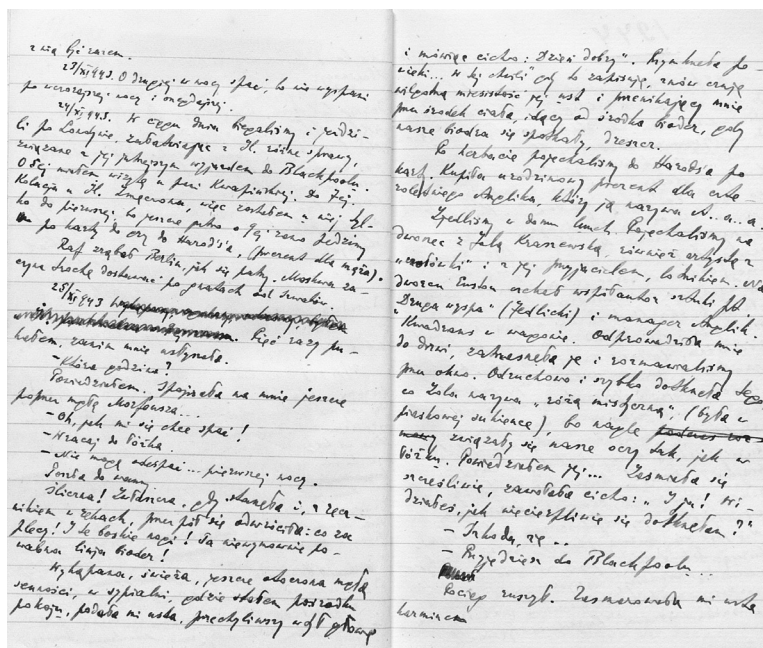 z nią być razem.
23/XI 943. O drugiej w nocy spać, to nie wyspani
po wczorajszej nocy i onegdajszej.
24/XI 943. W ciągu dnia biegaliśmy i jeździ-
li po Londynie, załatwiając z H. różne sprawy,
związane z jej jutrzejszym wyjazdem do Blackpoolu.
O 5ej miałem wizytę u pani Kwapińskiej. Do 7ej.
Kolacja u H. zmęczona, więc zostałem u niej tyl-
ko do pierwszej, bo jeszcze jutro o 9ej rano jedziemy
po karty do gry do Harrod's'a, (prezent dla męża).
Raf zrąbał Berlin, jak się patrzy. Moskwa za-
czyna trochę dostawać po gnatach od Szwabów.
25/XI 943
Pięć razy pu-
kałem, zanim mnie usłyszała.
– Która godzina?
Powiedziałem. Spojrzała na mnie jeszcze
poprzez mgłę Morfeusza...
– Oh, jak mi się chce spać!
– Wracaj do łóżka.
– Nie mogę odespać... pierwszej nocy.
Poszła do wanny
Śliczna! Zwłaszcza, gdy stanęła i, z ręcz-
nikiem w rękach, przez pół się odwróciła: co za
plecy! I te boskie nogi! Ta niewymownie po-
wabna linja bioder!
Wykąpana, świeża, jeszcze otoczona mgłą
senności, w sypialni, gdzie stałem pośrodku
pokoju, podała mi usta, przechyliwszy w tył głowę
i mówiąc cicho: "Dzień dobry". Przymknęła po-
wieki... W tej chwili gdy to zapisuję, znów czuję
wilgotną mięsistość jej ust i przenikający mnie
przez środek ciała, idący od środka bioder, gdy
nasze biodra się spotkały, dreszcz.
Po herbacie pojechaliśmy do Harrods'a po
karty. Kupiła urodzinowy prezent dla
roletniego Anglika, który ją nazywa A..a..a.
Zjedliśmy w domu lunch. Pojechaliśmy na
dworzec z Zulą Kraszewską, również artystką z
i z jej przyjacielem, lotnikiem. Na
dworzec Euston czekał współautor sztuki pt.
"Druga wyspa" (Jedlicki) i manager Anglik.
Kwadrans w wagonie. Odprowadziła mnie
do drzwi, zatrzasnęła je i rozmawialiśmy
przez okno. Odruchowo i szybko dotknęła tego
co Zula nazywa "różą mistyczną", (była w
piaskowej sukience), bo nagle
związały się nasze oczy tak, jak w
łóżku. Powiedziałem jej... Zaśmiała się
szczęśliwie, zawołała cicho: "I ja! Wi-
działeś, jak niecierpliwie się dotknęłam?"
– Szkoda, że...
– Przyjedziesz do Blackpoolu...
Pociąg ruszył. Zasmarowała mi usta
karminem